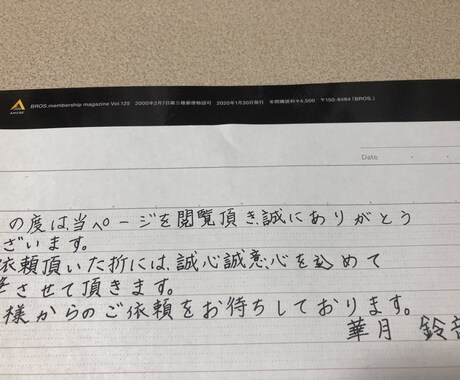 BROS.membership magazine Vol.125 2000年2月7日第三種郵便物認可 2020年1月30日発行 年間購読料¥4,500 〒150-8494「BROS.」
Date
の度は当ページを閲覧頂き誠にありがとう
ざいます。
依頼頂いた折には、誠心誠意心を込めて
させて頂きます。
様からのご依頼をお待ちしております。
華月 鈴音